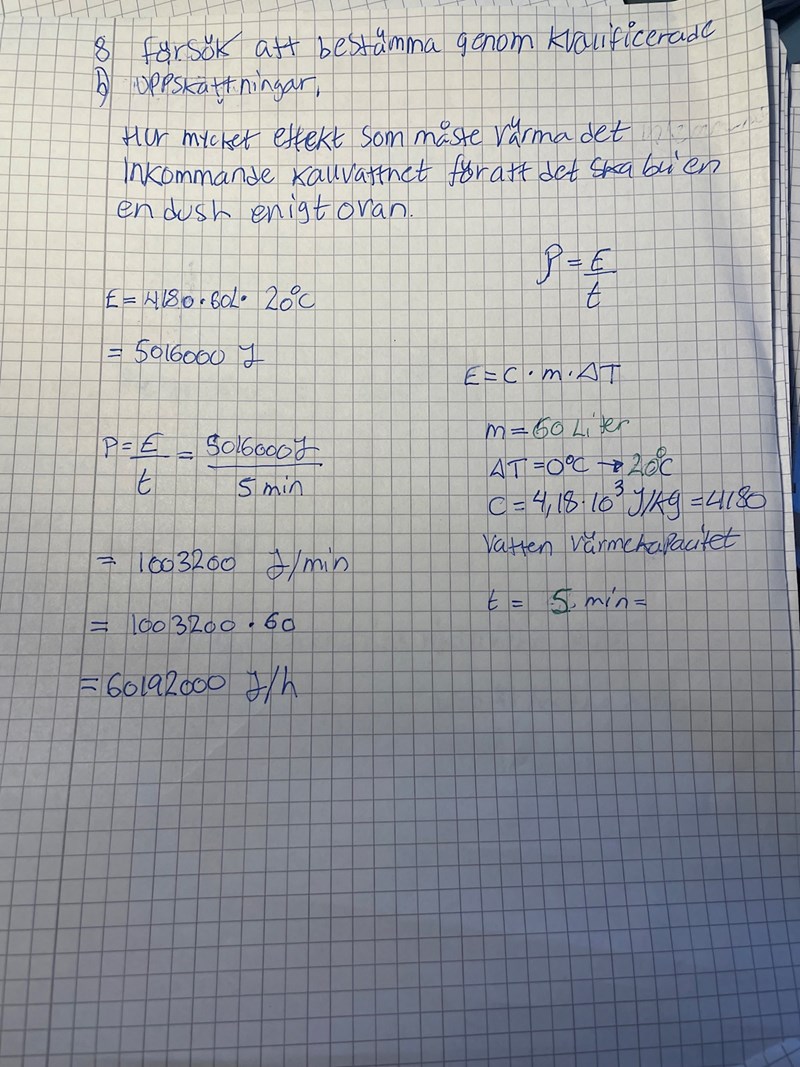 8 försök att bestämma genom kvalificerade
b) uppskattningar,
Hur mycket effekt som måste värma det
inkommande kallvattnet för att det ska bli en
en dush enigt ovan.
P = E/t
E = 4180 · 60l · 20°C
= 5016000 J
E = C · m · ΔT
m = 60 Liter
P = E/t = 5016000 J / 5 min
ΔT = 0°C → 20°C
C = 4,18 · 10³ J/kg = 4180
Vatten värmekapacitet
= 1003200 J/min
t = 5 min =
= 1003200 · 60
= 60192000 J/h